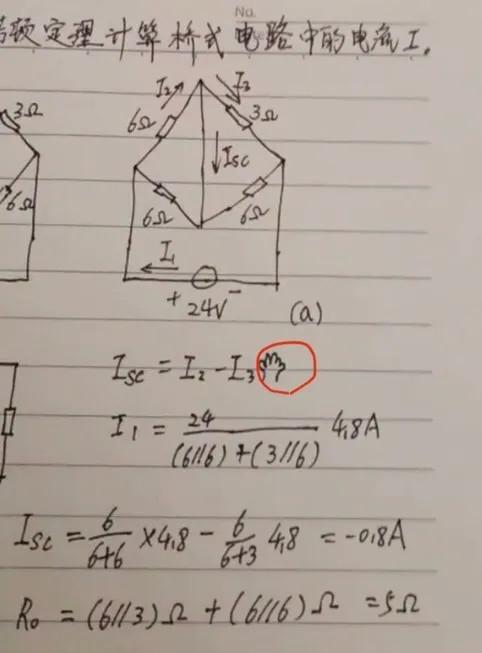 No.
顿定理计算桥式电路中的电流I。
I₂
I₃
3Ω
6Ω
3Ω
Isc
6Ω
6Ω
6Ω
I₁
+ 24V −
(a)
Isc = I₂ - I₃
I₁ = 24 / (6//6) + (3//6) 4.8A
Isc = 6/6+6 ×4.8 - 6/6+3 4.8 = -0.8A
R₀ = (6//3)Ω + (6//6)Ω = 5Ω